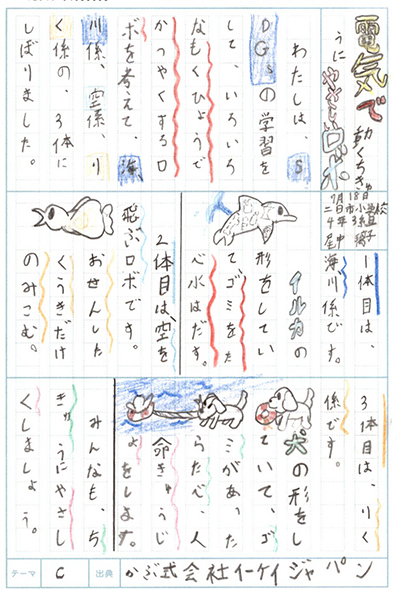 電気で動くちきゅ
うにやさしいロボ
7月18日
二日市小学校
4年3組
わたしは、S
DGsの学習を
して、いろいろ
なもくひょうで
かつやくするロ
ボを考えて、海
川係、空係、り
く係の、3体に
しぼりました。
1体目は、
海川係です。
イルカの
形をしてい
てゴミをた
べ水はだす。
2体目は、空を
飛ぶロボです。
おせんした
くうきだけ
のみこむ。
3体目は、りく
係です。
犬の形をし
ていて、ゴ
ミがあったら
たべ、人
命きゅうじ
ょをします。
みんなも、ち
きゅうにやさし
くしましょう。
テーマ C 出典 かぶ式会社イーケイジャパン